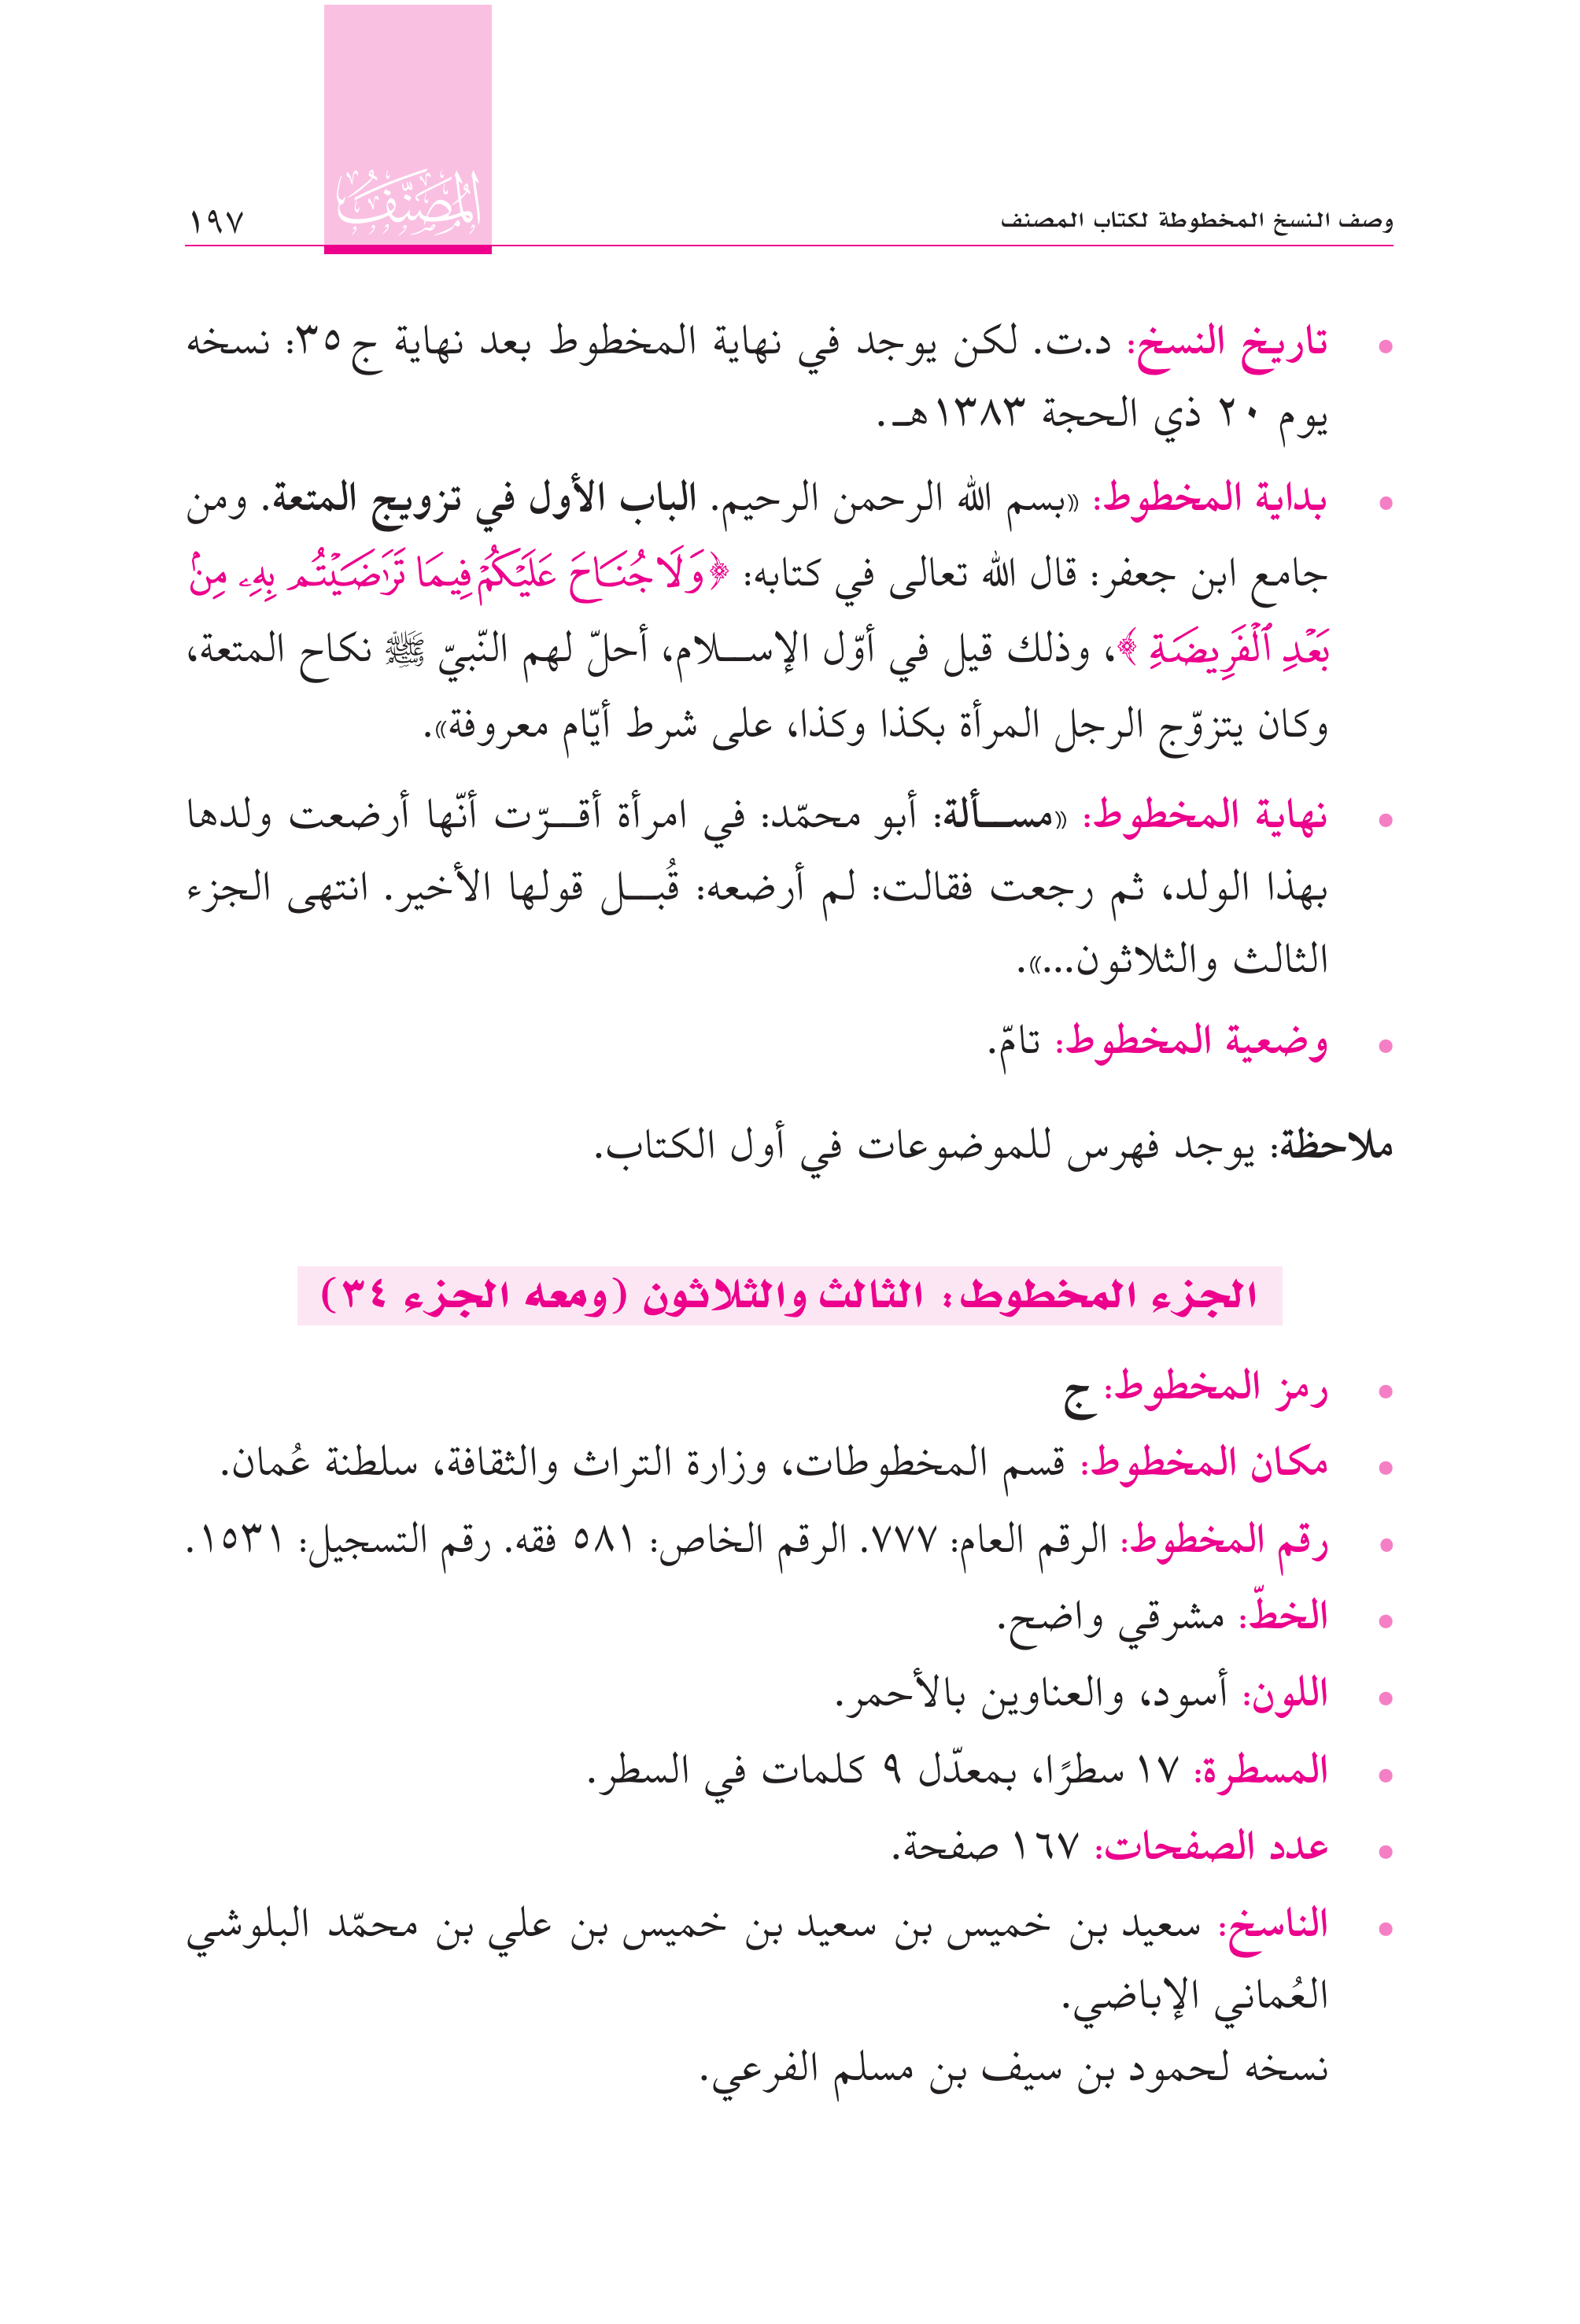 وصف النسخ المخطوطة لكتاب المصنف
المُصَنَّف
١٩٧
• تاريخ النسخ: د.ت. لكن يوجد في نهاية المخطوط بعد نهاية ج٣٥: نسخه
يوم ٢٠ ذي الحجة ١٣٨٣هـ.
• بداية المخطوط: «بسم الله الرحمن الرحيم. الباب الأول في تزويج المتعة. ومن
جامع ابن جعفر: قال الله تعالى في كتابه: ﴿وَلَا جُنَاحَ عَلَيْكُمْ فِيمَا تَرَٰضَيْتُم بِهِۦ مِنۢ
بَعْدِ ٱلْفَرِيضَةِ﴾، وذلك قيل في أوّل الإســلام، أحلّ لهم النّبيّ ﷺ نكاح المتعة،
وكان يتزوّج الرجل المرأة بكذا وكذا، على شرط أيّام معروفة».
• نهاية المخطوط: «مســألة: أبو محمّد: في امرأة أقــرّت أنّها أرضعت ولدها
بهذا الولد، ثم رجعت فقالت: لم أرضعه: قُبــل قولها الأخير. انتهى الجزء
الثالث والثلاثون...».
• وضعية المخطوط: تامّ.
ملاحظة: يوجد فهرس للموضوعات في أول الكتاب.
الجزء المخطوط: الثالث والثلاثون (ومعه الجزء ٣٤)
• رمز المخطوط: ج
• مكان المخطوط: قسم المخطوطات، وزارة التراث والثقافة، سلطنة عُمان.
• رقم المخطوط: الرقم العام: ٧٧٧. الرقم الخاص: ٥٨١ فقه. رقم التسجيل: ١٥٣١.
• الخطّ: مشرقي واضح.
• اللون: أسود، والعناوين بالأحمر.
• المسطرة: ١٧ سطرًا، بمعدّل ٩ كلمات في السطر.
• عدد الصفحات: ١٦٧ صفحة.
• الناسخ: سعيد بن خميس بن سعيد بن خميس بن علي بن محمّد البلوشي
العُماني الإباضي.
نسخه لحمود بن سيف بن مسلم الفرعي.